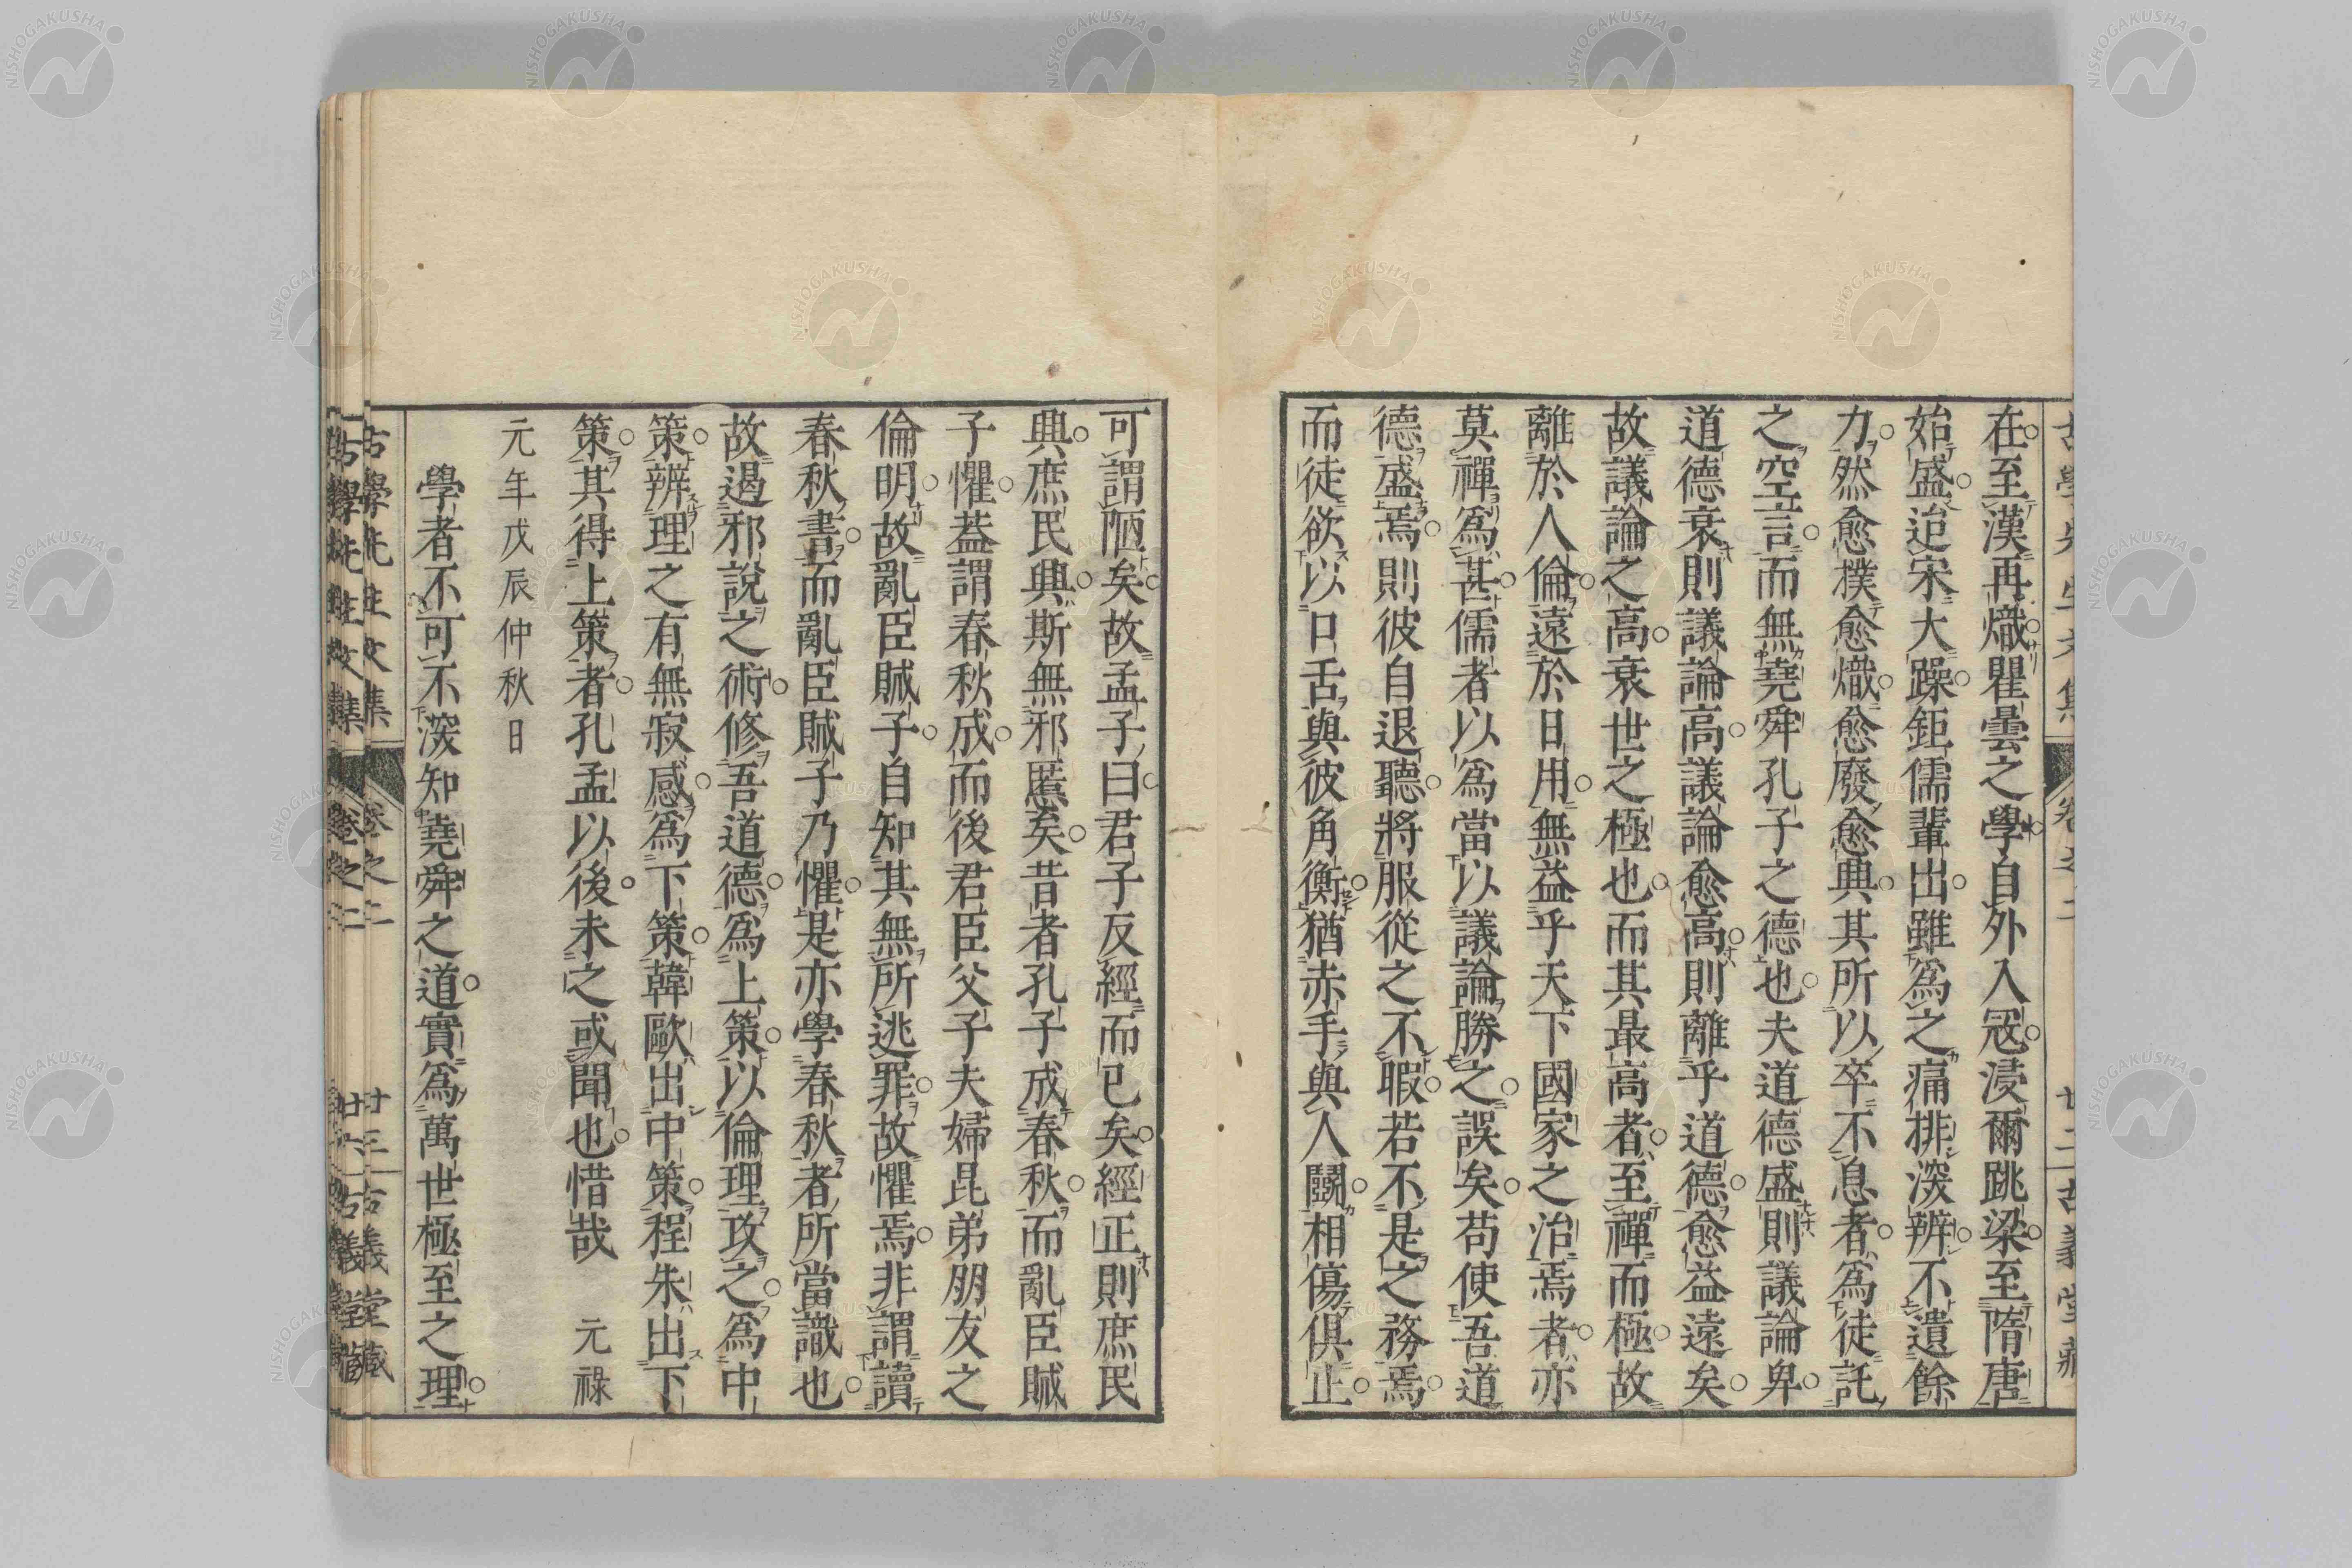 在至漢再熾瞿曇之學自外入冦浸爾跳梁至隋唐
始盛迨宋大躁鉅儒輩出雖爲之痛排深辨不遺餘
力然愈撲愈熾愈廢愈興其所以卒不息者爲徒託
之空言而無堯舜孔子之德也夫道德盛則議論卑
道德衰則議論高議論愈高則離乎道德愈益遠矣
故議論之高衰世之極也而其最高者至禪而極故
離於人倫遠於日用無益乎天下國家之治焉者亦
莫禪爲甚儒者以爲當以議論勝之誤矣苟使吾道
德盛焉則彼自退聽將服從之不暇若不是之務焉
而徒欲以口舌與彼角衡猶赤手與人鬪相傷俱止
可謂陋矣故孟子曰君子反經而已矣經正則庶民
興庶民興斯無邪慝矣昔者孔子成春秋而亂臣賊
子懼葢謂春秋成而後君臣父子夫婦昆弟朋友之
倫明故亂臣賊子自知其無所逃罪故懼焉非謂讀
春秋書而亂臣賊子乃懼是亦學春秋者所當識也
故遏邪說之術修吾道德爲上策以倫理攻之爲中
策辨理之有無寂感爲下策韓歐出中策程朱出下
策其得上策者孔孟以後未之或聞也惜哉 元祿
元年戊辰仲秋日
學者不可不深知堯舜之道實爲萬世極至之理
古學先生文集 卷之二 廿三 古義堂藏
古學先生文集 卷之二 廿六 古義堂藏